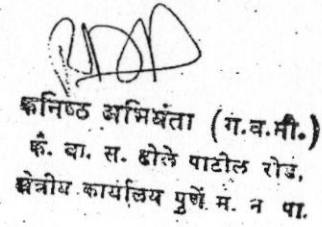 कनिष्ठ अभियंता (ग.व.मी.)
कै. वा. स. ढोले पाटील रोड,
क्षेत्रीय कार्यालय पुणे म. न पा.